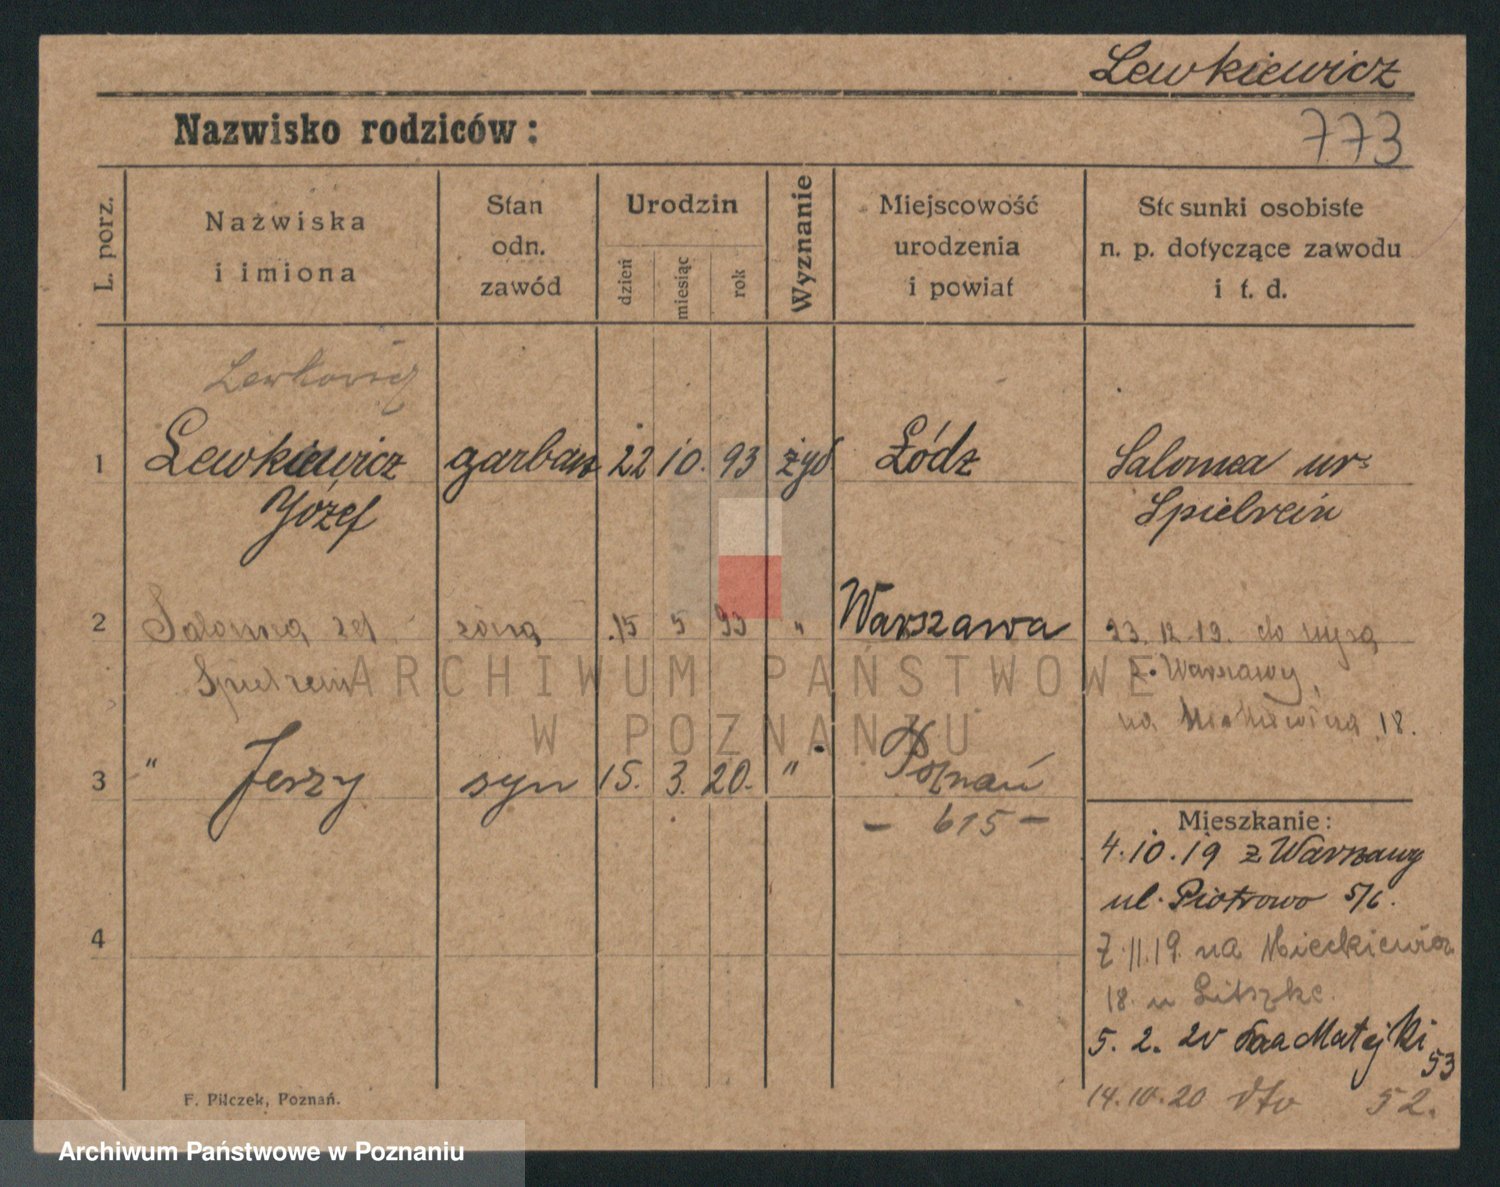 Lewkiewicz
Nazwisko rodziców:
773
L. porz.
Nazwiska
i imiona
Stan
odn.
zawód
Urodzin
dzień
miesiąc
rok
Wyznanie
Miejscowość
urodzenia
i powiat
Stosunki osobiste
n. p. dotyczące zawodu
i t. d.
Lewkowicz
1 Lewkiewicz garbarz 22 10. 93 żyd Łódz Salomea ur.
Józef Spielrein
2 Salomea żona 15 5 93 " Warszawa 23. 12. 19. do
Spielrein z Warszawy
na 18.
3 " Jerzy syn 15. 3. 20. " Poznań
- 615 -
Mieszkanie:
4. 10. 19 z Warszawy
ul. Piotrowo 5/6.
4
7. 11. 19. na Mickiewicza
18. u
5. 2. 20 Jana Matejki
53
14. 10. 20 dto 52.
F. Pilczek, Poznań.
ARCHIWUM PAŃSTWOWE
W POZNANIU
Archiwum Państwowe w Poznaniu